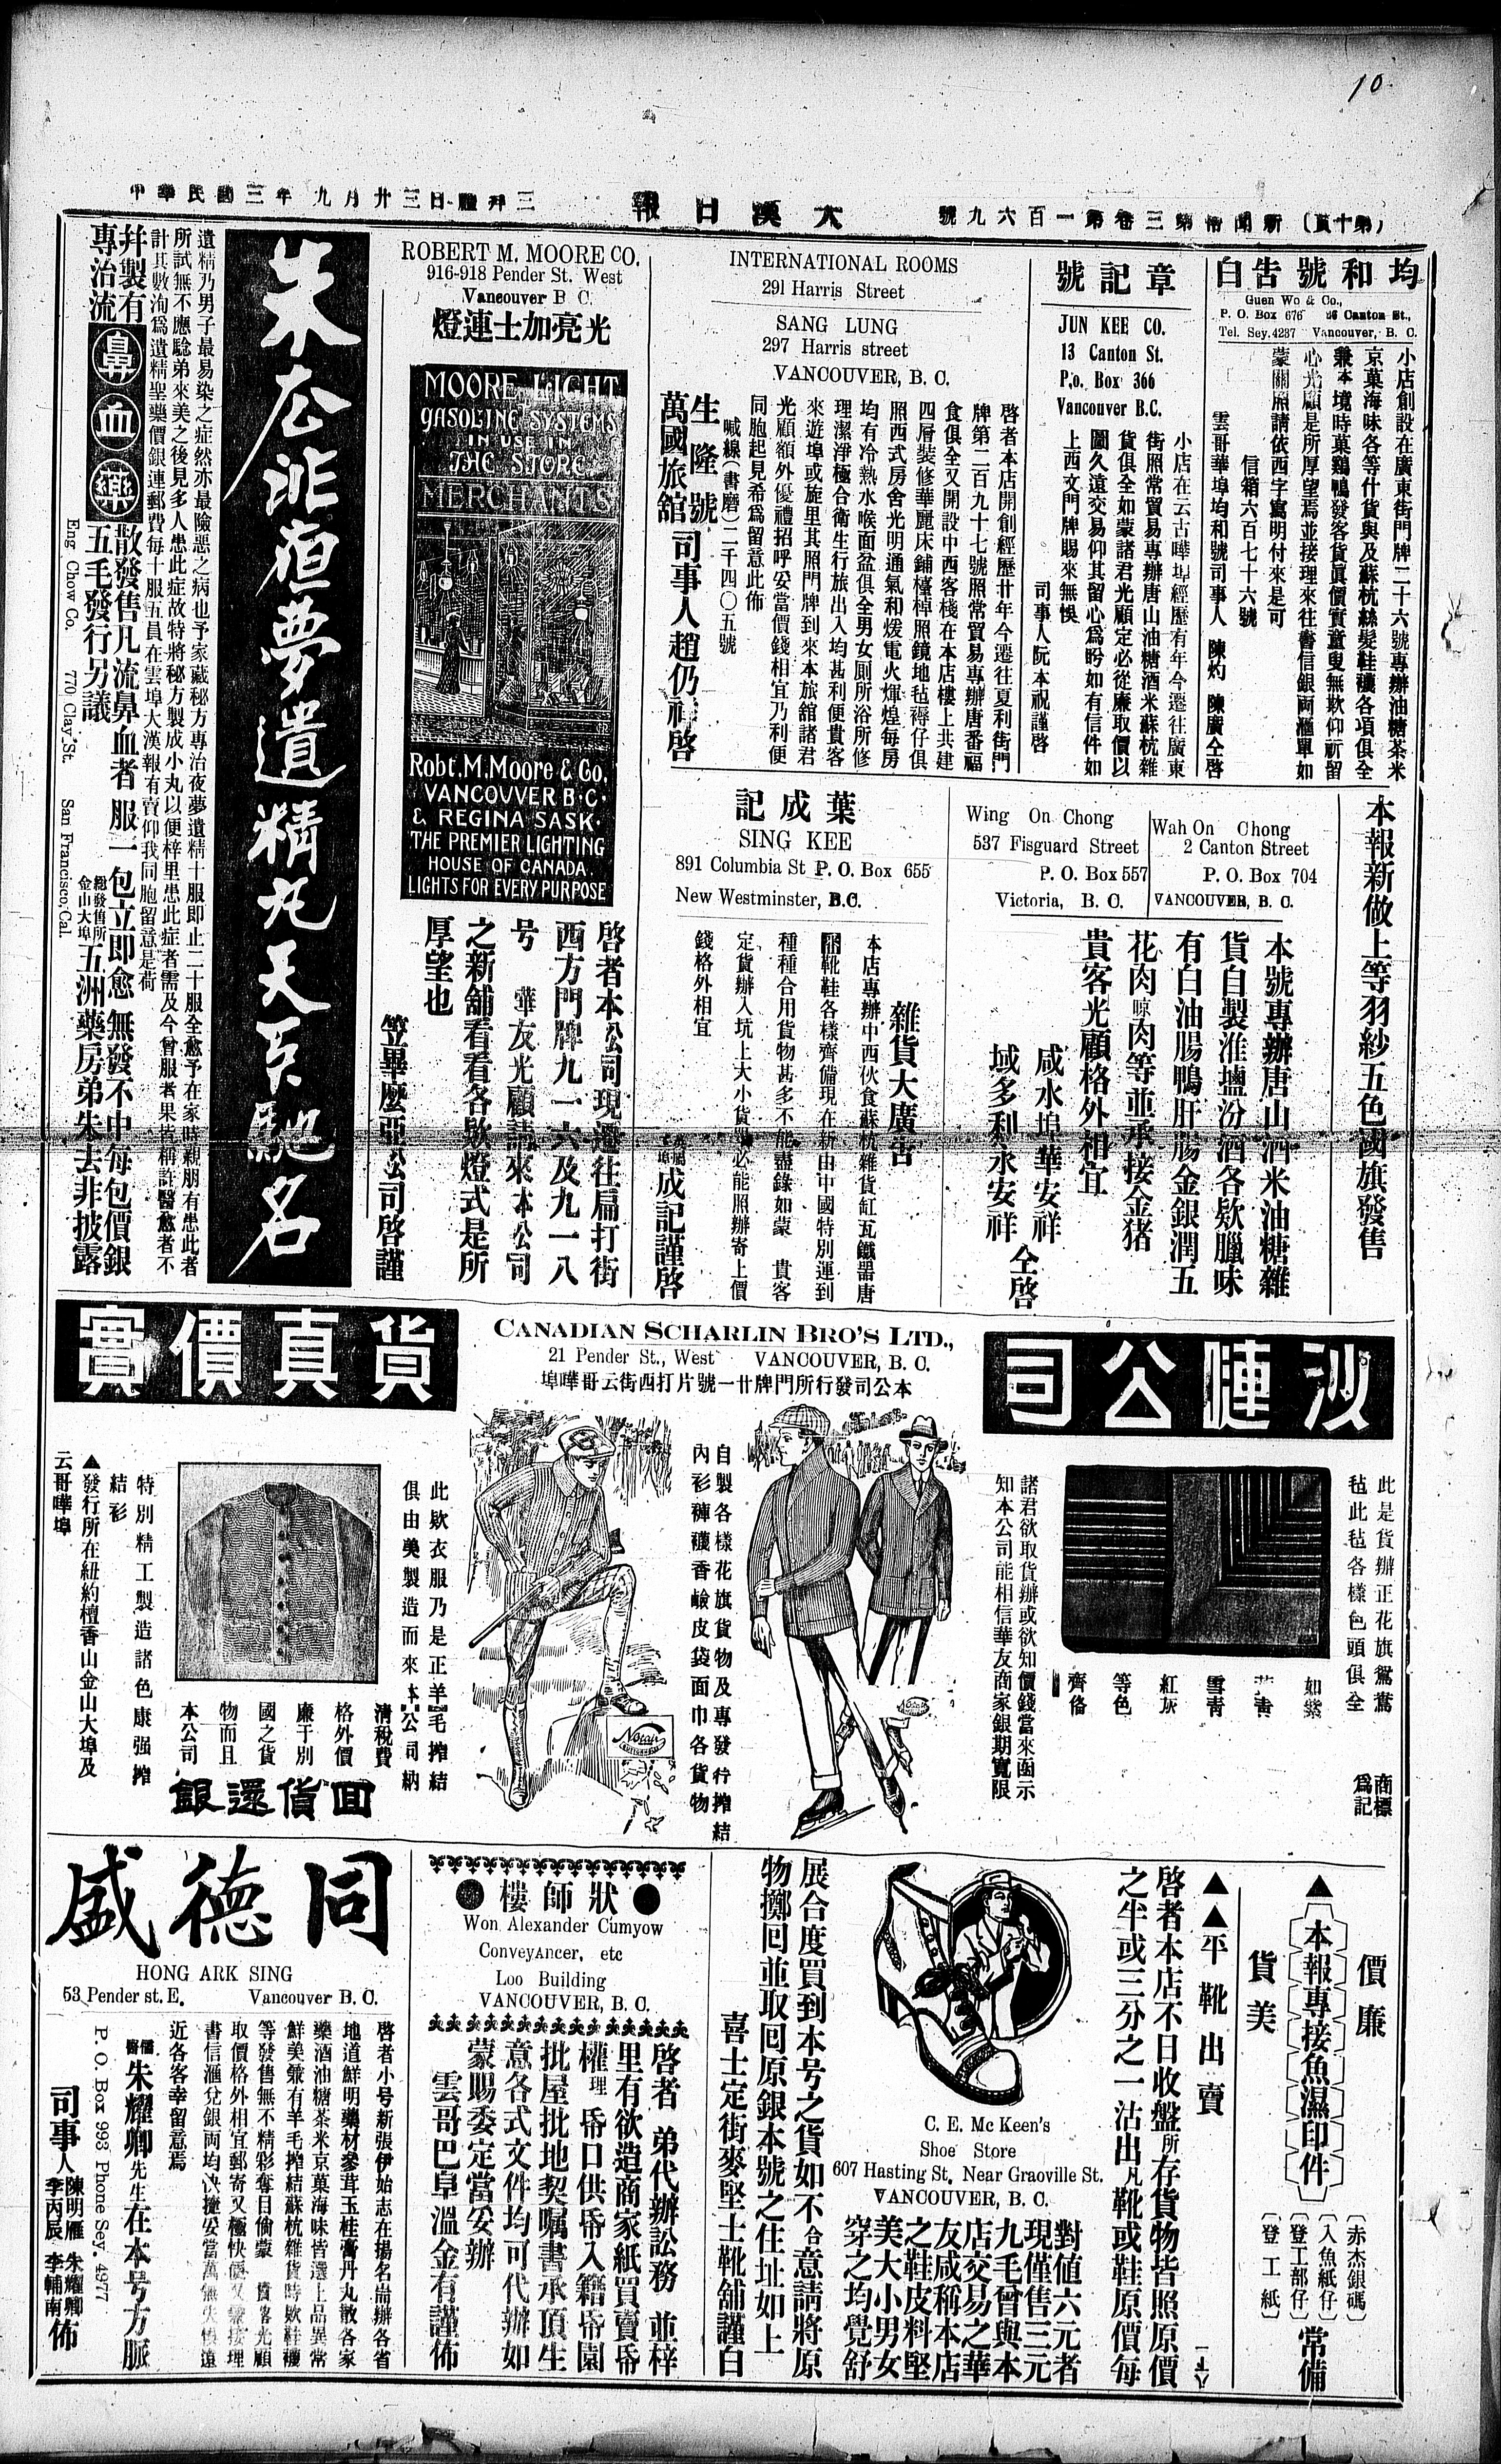 10
(第十頁) 新聞帋第三卷第一百六九號
大漢日報
中華民國三年九月廿三日禮拜三
均和號告白
Guen Wo & Co.,
P. O. Box 676 26 Canton St.,
Tel. Sey.4287 Vancouver, B. C.
小店創設在廣東街門牌二十六號專辦油糖茶米
京菓海味各等什貨與及蘇杭絲髮鞋襪各項俱全
兼本境時菓鷄鴨發客貨眞價實童叟無欺仰祈留
心光顧是所厚望焉並接理來往書信銀両滙單如
蒙關照請依西字寫明付來是可
信箱六百七十六號
雲哥華埠均和號司事人 陳灼 陳廣仝啓
章記號
JUN KEE CO.
13 Canton St.
P.o. Box 366
Vancouver B.C.
小店在云古嘩埠經歷有年今遷往廣東
街照常貿易專辦唐山油糖酒米蘇杭雜
貨俱全如蒙諸君光顧定必從廉取價以
圖久遠交易仰其留心爲盼如有信件如
上西文門牌賜來無悞
司事人阮本祝謹啓
INTERNATIONAL ROOMS
291 Harris Street
SANG LUNG
297 Harris street
VANCOUVER, B. C.
啓者本店開創經歷廿年今遷往夏利街門
牌第二百九十七號照常貿易專辦唐番福
食俱全又開設中西客棧在本店樓上共建
四層裝修華麗床鋪檯椅照鏡地毡褥仔俱
照西式房舍光明通氣和煖電火煇煌每房
均有冷熱水喉面盆俱全男女厠所浴所修
理潔淨極合衛生行旅出入均甚利便貴客
來遊埠或旋里其照門牌到來本旅舘諸君
光顧額外優禮招呼妥當價錢相宜乃利便
同胞起見希爲留意此佈
喊線(書磨)二千四〇五號
生隆號
萬國旅舘
司事人趙仍祥啓
ROBERT M. MOORE CO.
916-918 Pender St. West
Vancouver B C.
光亮加士連燈
MOORE LIGHT
GASOLINE SYSTEMS
IN USE IN
THE STORE
MERCHANTS
Robt. M. Moore & Co.
VANCOUVER B·C·
& REGINA SASK·
THE PREMIER LIGHTING
HOUSE OF CANADA
LIGHTS FOR EVERY PURPOSE
啓者本公司現遷往扁打街
西方門牌九一六及九一八
号 華友光顧請來本公司
之新舖看看各欵燈式是所
厚望也
笠畢麼亞公司啓謹
朱去非痘夢遺精丸天下馳名
遺精乃男子最易染之症然亦最險惡之病也予家藏秘方專治夜夢遺精十服即止二十服全愈予在家時親朋有患此者
所試無不應驗弟來美之後見多人患此症故特將秘方製成小丸以便梓里患此症者需及今曾服者果皆稱許醫愈者不
計其數洵爲遺精聖藥價銀連郵費每十服五員在雲埠大漢報有賣仰我同胞留意是荷
幷製有
專治流
鼻血藥
散發售凡流鼻血者服一包立即愈無發不中每包價銀
五毛發行另議
總發售所
金山大埠
五洲藥房弟朱去非披露
Eng Chow Co. 770 Clay St. San Francisco, Cal.
本報新做上等羽紗五色國旗發售
Wah On Chong
2 Canton Street
P. O. Box 704
VANCOUVER, B. C.
Wing On Chong
537 Fisguard Street
P. O. Box 557
Victoria, B. C.
本號專辦唐山酒米油糖雜
貨自製淮塩汾酒各欵臘味
有白油腸鴨肝腸金銀潤五
花肉晾肉等並承接金猪
貴客光顧格外相宜
咸水埠華安祥
域多利永安祥
仝啓
葉成記
SING KEE
891 Columbia St P. O. Box 655
New Westminster, B.C.
雜貨大廣告
本店專辦中西伙食蘇杭雜貨缸瓦鐵器唐
靴鞋各樣齊備現在新由中國特別運到
種種合用貨物甚多不能盡錄如蒙 貴客
定貨辦入坑上大小貨必能照辦寄上價
錢格外相宜
成記謹啓
沙嗹公司
CANADIAN SCHARLIN BRO'S LTD.,
21 Pender St., West VANCOUVER, B. C.
本公司發行所門牌廿一號片打西街云哥嘩埠
貨真價實
此是貨辦正花旗鴛鴦
毡此毡各樣色頭俱全
如紫
雪青
紅灰
等色
齊俻
商標
爲記
諸君欲取貨辦或欲知價錢當來函示
知本公司能相信華友商家銀期寬限
自製各樣花旗貨物及專發行搾結
內衫褲襪香鹼皮袋面巾各貨物
此欵衣服乃是正羊毛搾結
俱由美製造而來本公司納
清稅費
格外價
廉于別
國之貨
物而且
本公司
回貨還銀
特別精工製造諸色康强搾
結衫
▲發行所在紐約檀香山金山大埠及
云哥嘩埠
價廉
▲本報專接魚濕印件
貨美
〔赤杰銀碼〕
〔入魚紙仔〕
〔登工部仔〕
〔登工紙〕
常備
▲▲平靴出賣
啓者本店不日收盤所存貨物皆照原價
之半或三分之一沽出凡靴或鞋原價每
對值六元者
現僅售三元
九毛曾與本
店交易之華
友咸稱本店
之鞋皮料堅
美大小男女
穿之均覺舒
C. E. Mc Keen's
Shoe Store
607 Hasting St, Near Graoville St.
VANCOUVER, B. C.
展合度買到本号之貨如不合意請將原
物擲囘並取囘原銀本號之住址如上
喜士定街麥堅士靴舖謹白
狀師樓
Won Alexander Cumyow
Conveyancer, etc
Loo Building
VANCOUVER, B. C.
啓者 弟代辦訟務 並梓
里有欲造商家紙買賣帋
權理帋口供帋入籍帋園
批屋批地契嘱書承頂生
意各式文件均可代辦如
蒙賜委定當妥辦
雲哥巴阜溫金有謹佈
同德盛
HONG ARK SING
53 Pender st. E. Vancouver B. C.
啓者小号新張伊始志在揚名耑辦各省
地道鮮明藥材參茸玉桂膏丹丸散各家
藥酒油糖茶米京菓海味皆選上品異常
鮮美兼有羊毛搾結蘇杭雜貨時欵鞋襪
等發售無不精彩奪目倘蒙 貴客光顧
取價格外相宜郵寄又極快
書信滙兌銀両均快捷妥當萬無失
近各客幸留意焉
儒醫朱耀卿先生在本号方脈
P. O. Box 993 Phone Sey. 4977
司事人
陳明雁 朱耀卿
李丙辰 李輔南
佈